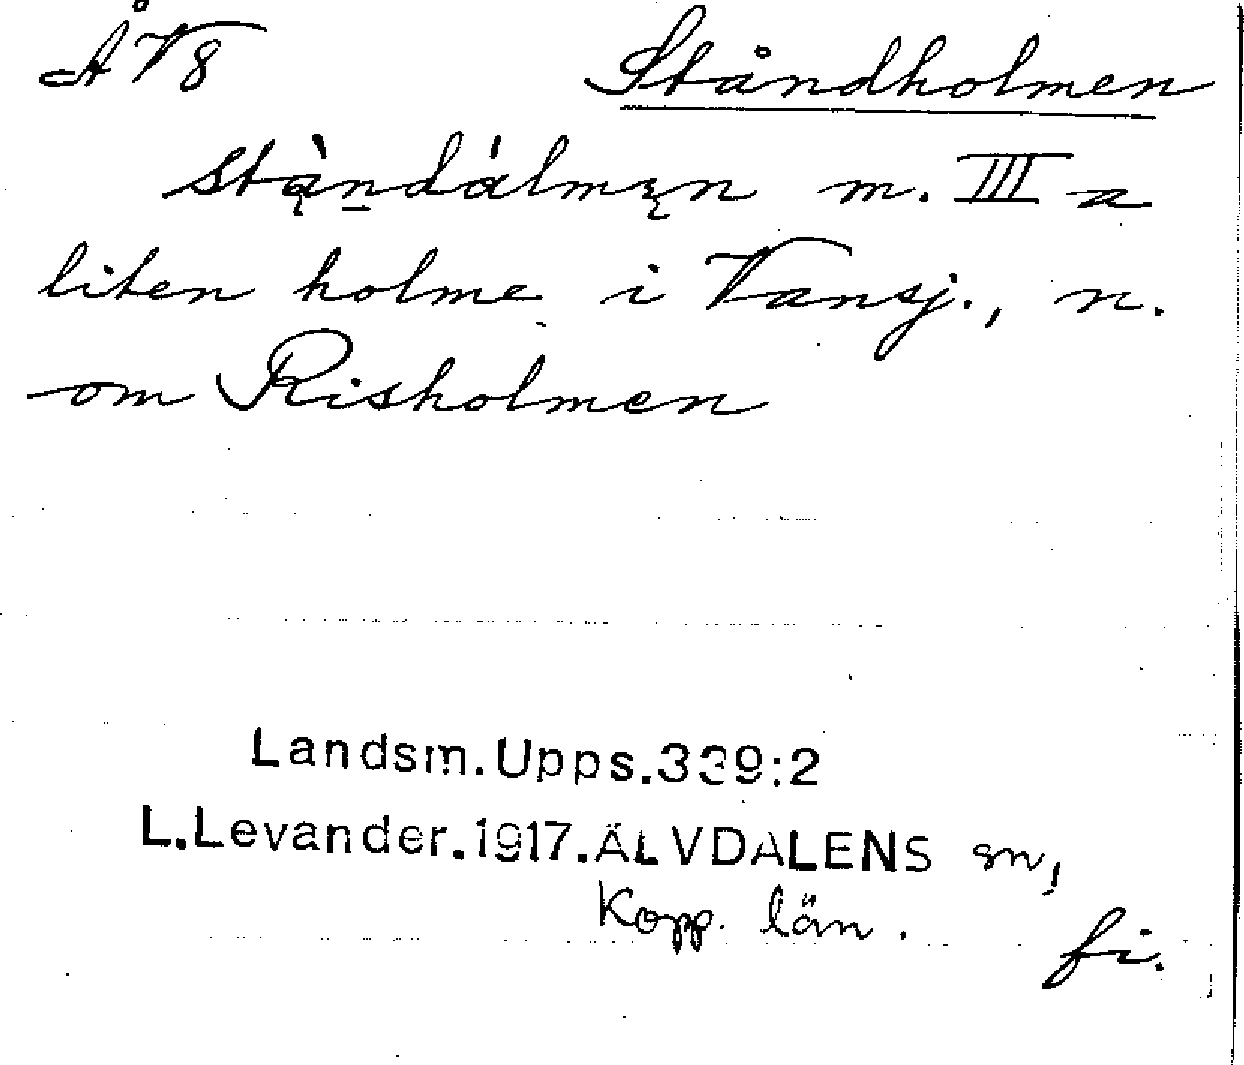 ÅV8 Ståndholmen
stą̀n̠dálmę̨n m. III a
liten holme i Vansj., n.
om Risholmen
Landsm.Upps.339:2
L.Levander.1917.ÄLVDALENS sn,
Kopp. län.
fi.